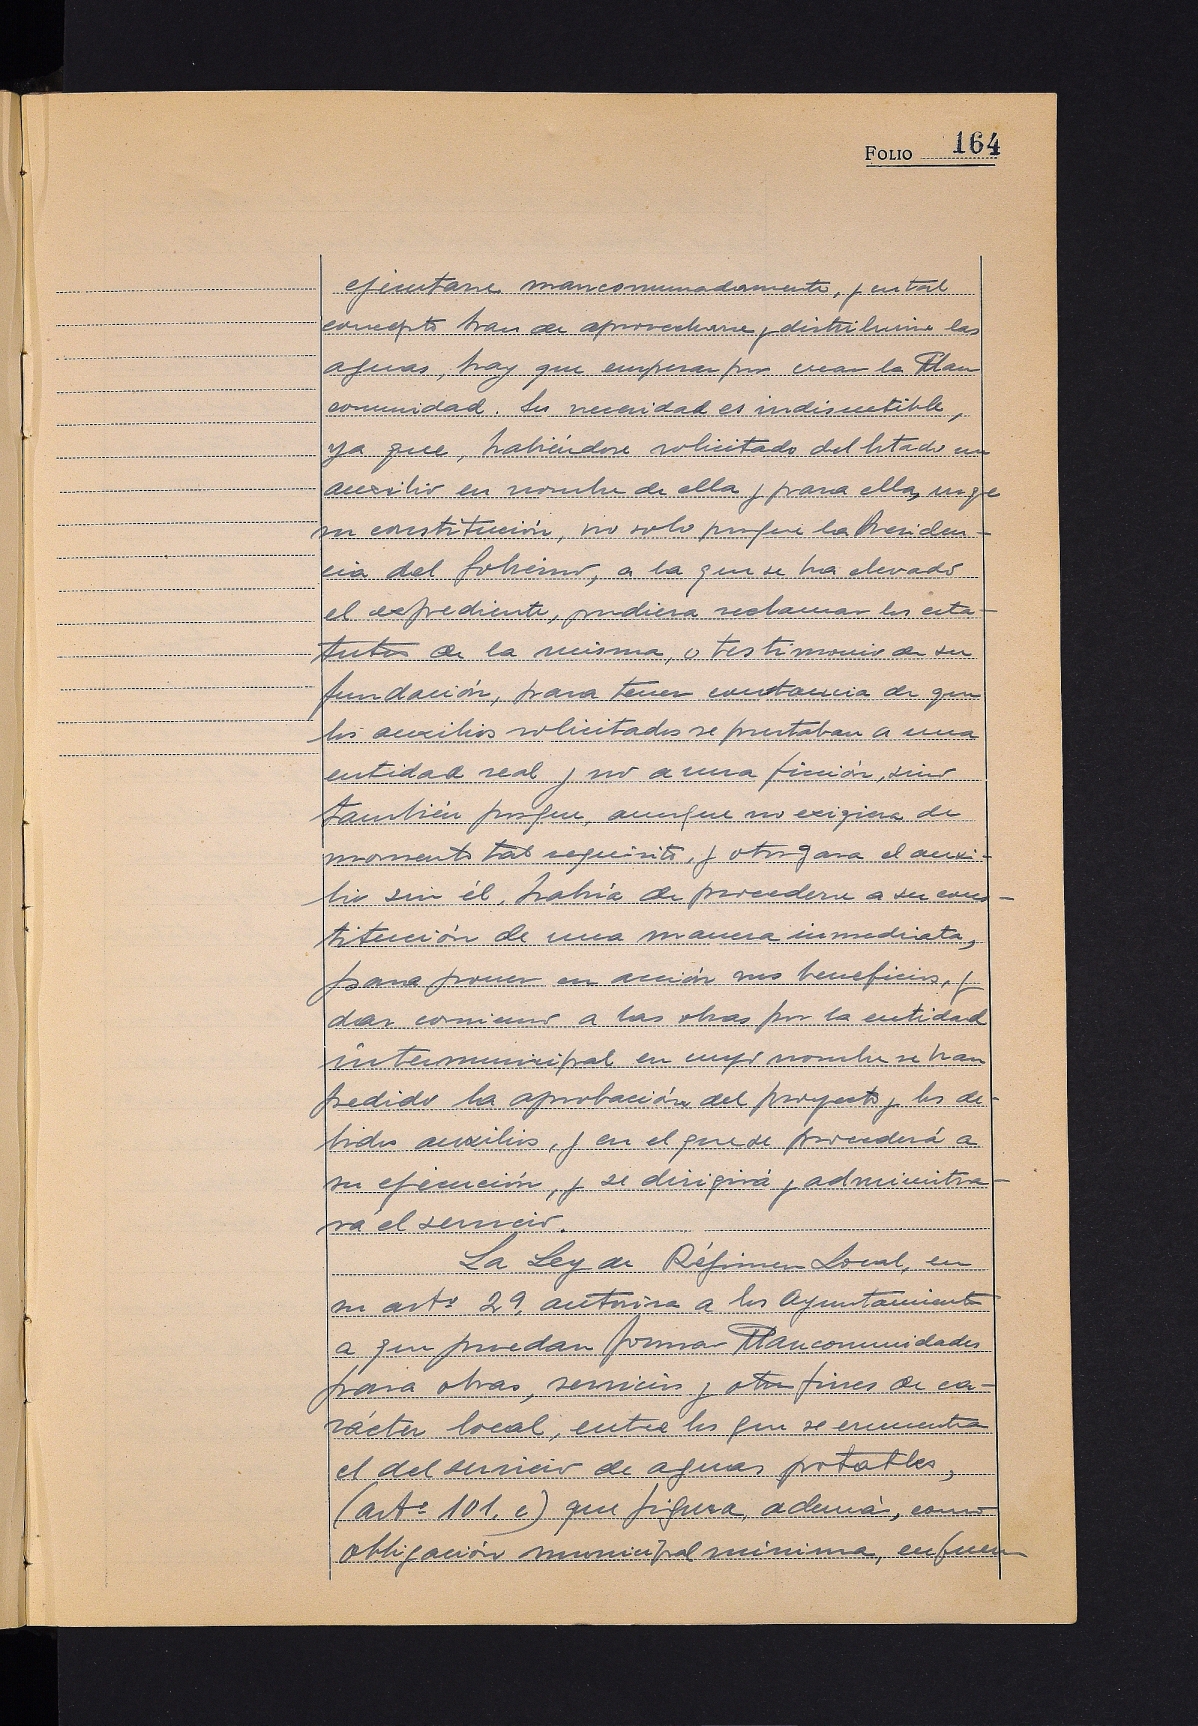 FOLIO 164
ejecutarse mancomunadamente, y en tal
concepto han de aprovecharse y distribuirse las
aguas, hay que empezar por crear la Man
comunidad. Su necesidad es indiscutible,
ya que, habiéndose solicitado del Estado un
auxilio en nombre de ella y para ella, urge
su constitución, no solo porque la Presiden-
cia del Gobierno, a la que se ha elevado
el expediente, pudiera reclamar los esta-
tutos de la misma, o testimonio de su
fundación, para tener constancia de que
los auxilios solicitados se prestaban a una
entidad real y no a una ficción, sino
también porque, aunque no exigiera de
momento tal requisito, y otorgara el auxi-
lio sin él, habría de procederse a su cons-
titución de una manera inmediata,
para poner en acción sus beneficios, y
dar comienzo a las obras por la entidad
intermunicipal en cuyo nombre se han
pedido la aprobación del proyecto y los de-
bidos auxilios, y en el que se procederá a
su ejecución, y se dirigirá y administra-
rá el servicio.
La Ley de Régimen Local, en
su artº 29, autoriza a los Ayuntamientos
a que puedan formar Mancomunidades
para obras, servicios y otros fines de ca-
rácter local, entre los que se encuentra
el del servicio de aguas potables,
(artº 101, c) que figura, además, como
obligación municipal mínima, en fuen